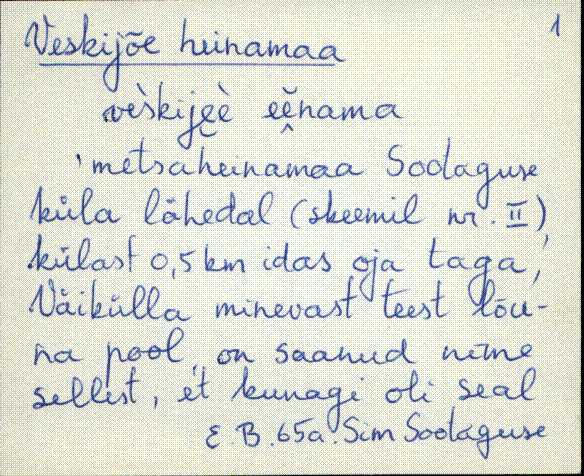 1
Veskijõe heinamaa
vèskijẹẹ̀ eěnama
'metsaheinamaa Sodaguse
küla lähedal (skeemil nr. II)
külast 0,5 km idas oja taga,
Väikülla minevast teest lõu-
na pool, on saanud nime
sellest, et kunagi oli seal
E.B. 65a. Sim Soolaguse